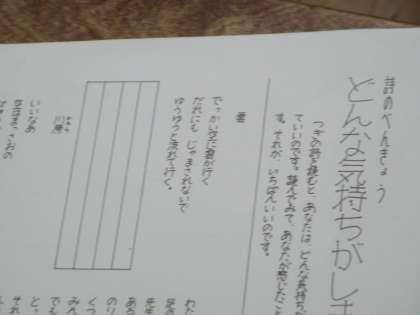 詩のべんきょう
どんな気持ちがし
つぎの詩を読むと、あなたは、どんな気持ちが
ていいのです。読んでみて、あなたが感じたこと
す。それが、いちばんいいのです。
雲
でっかい空を雲が行く
だれにも じゃまされないで
ゆうゆうと流れて行く。
かわら
川原
いいなあ
草はまっさおの
わた
足の
先生
ある
のり
くつ
みん
でも
それ
とっ